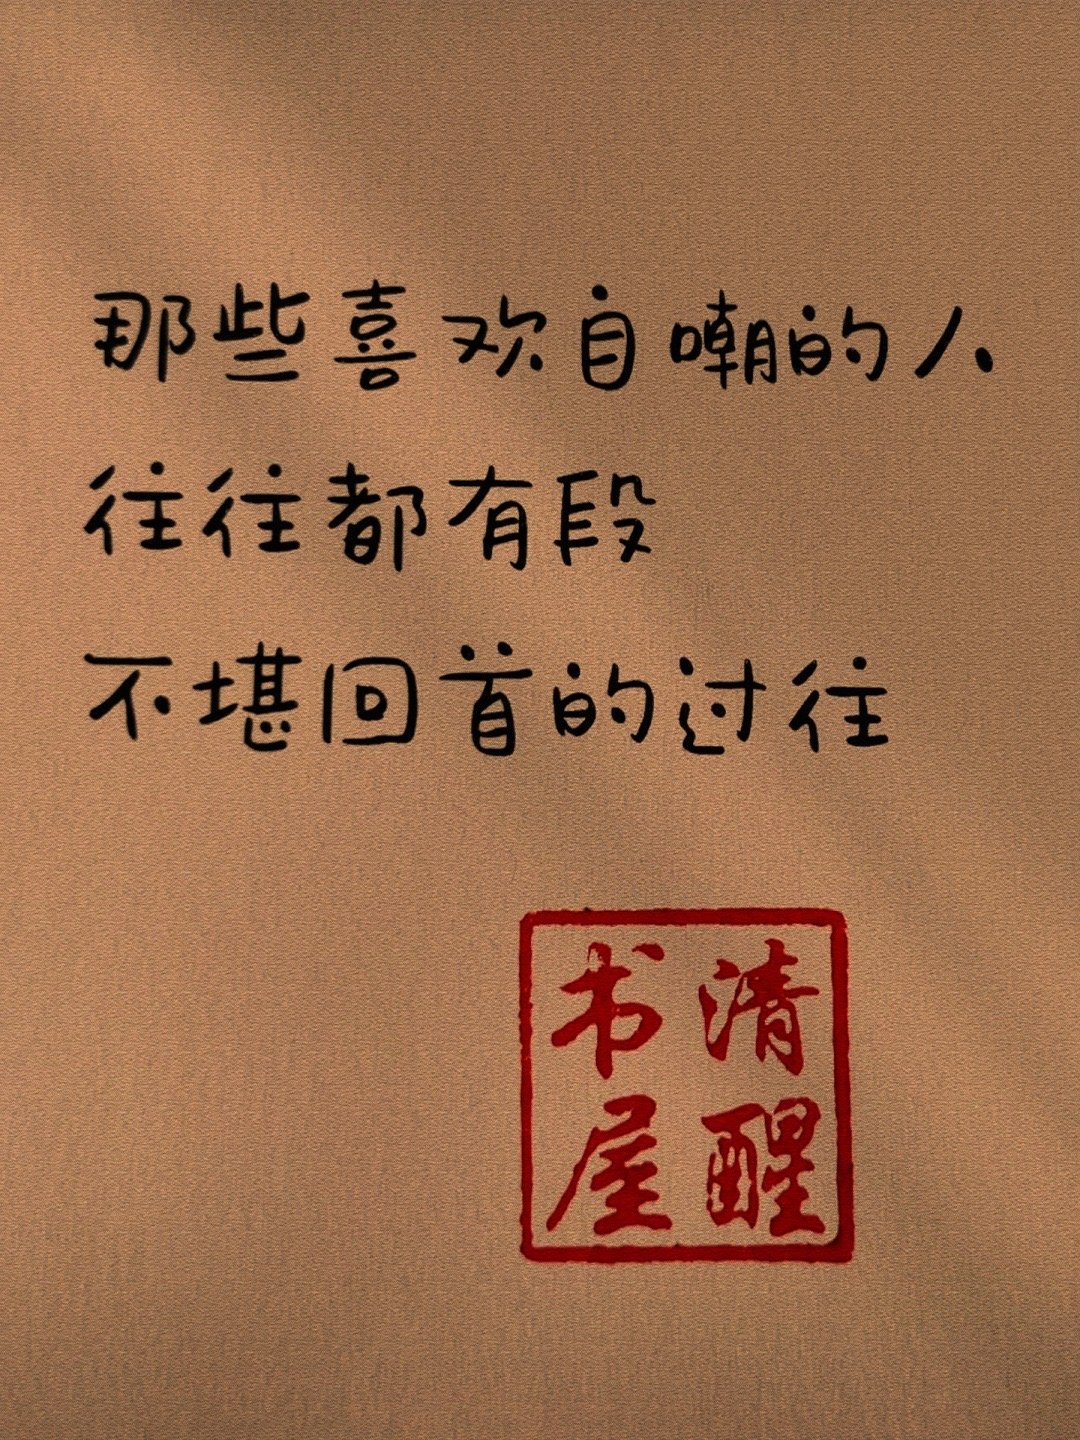 那些喜欢自嘲的人
往往都有段
不堪回首的过往
清醒
书屋